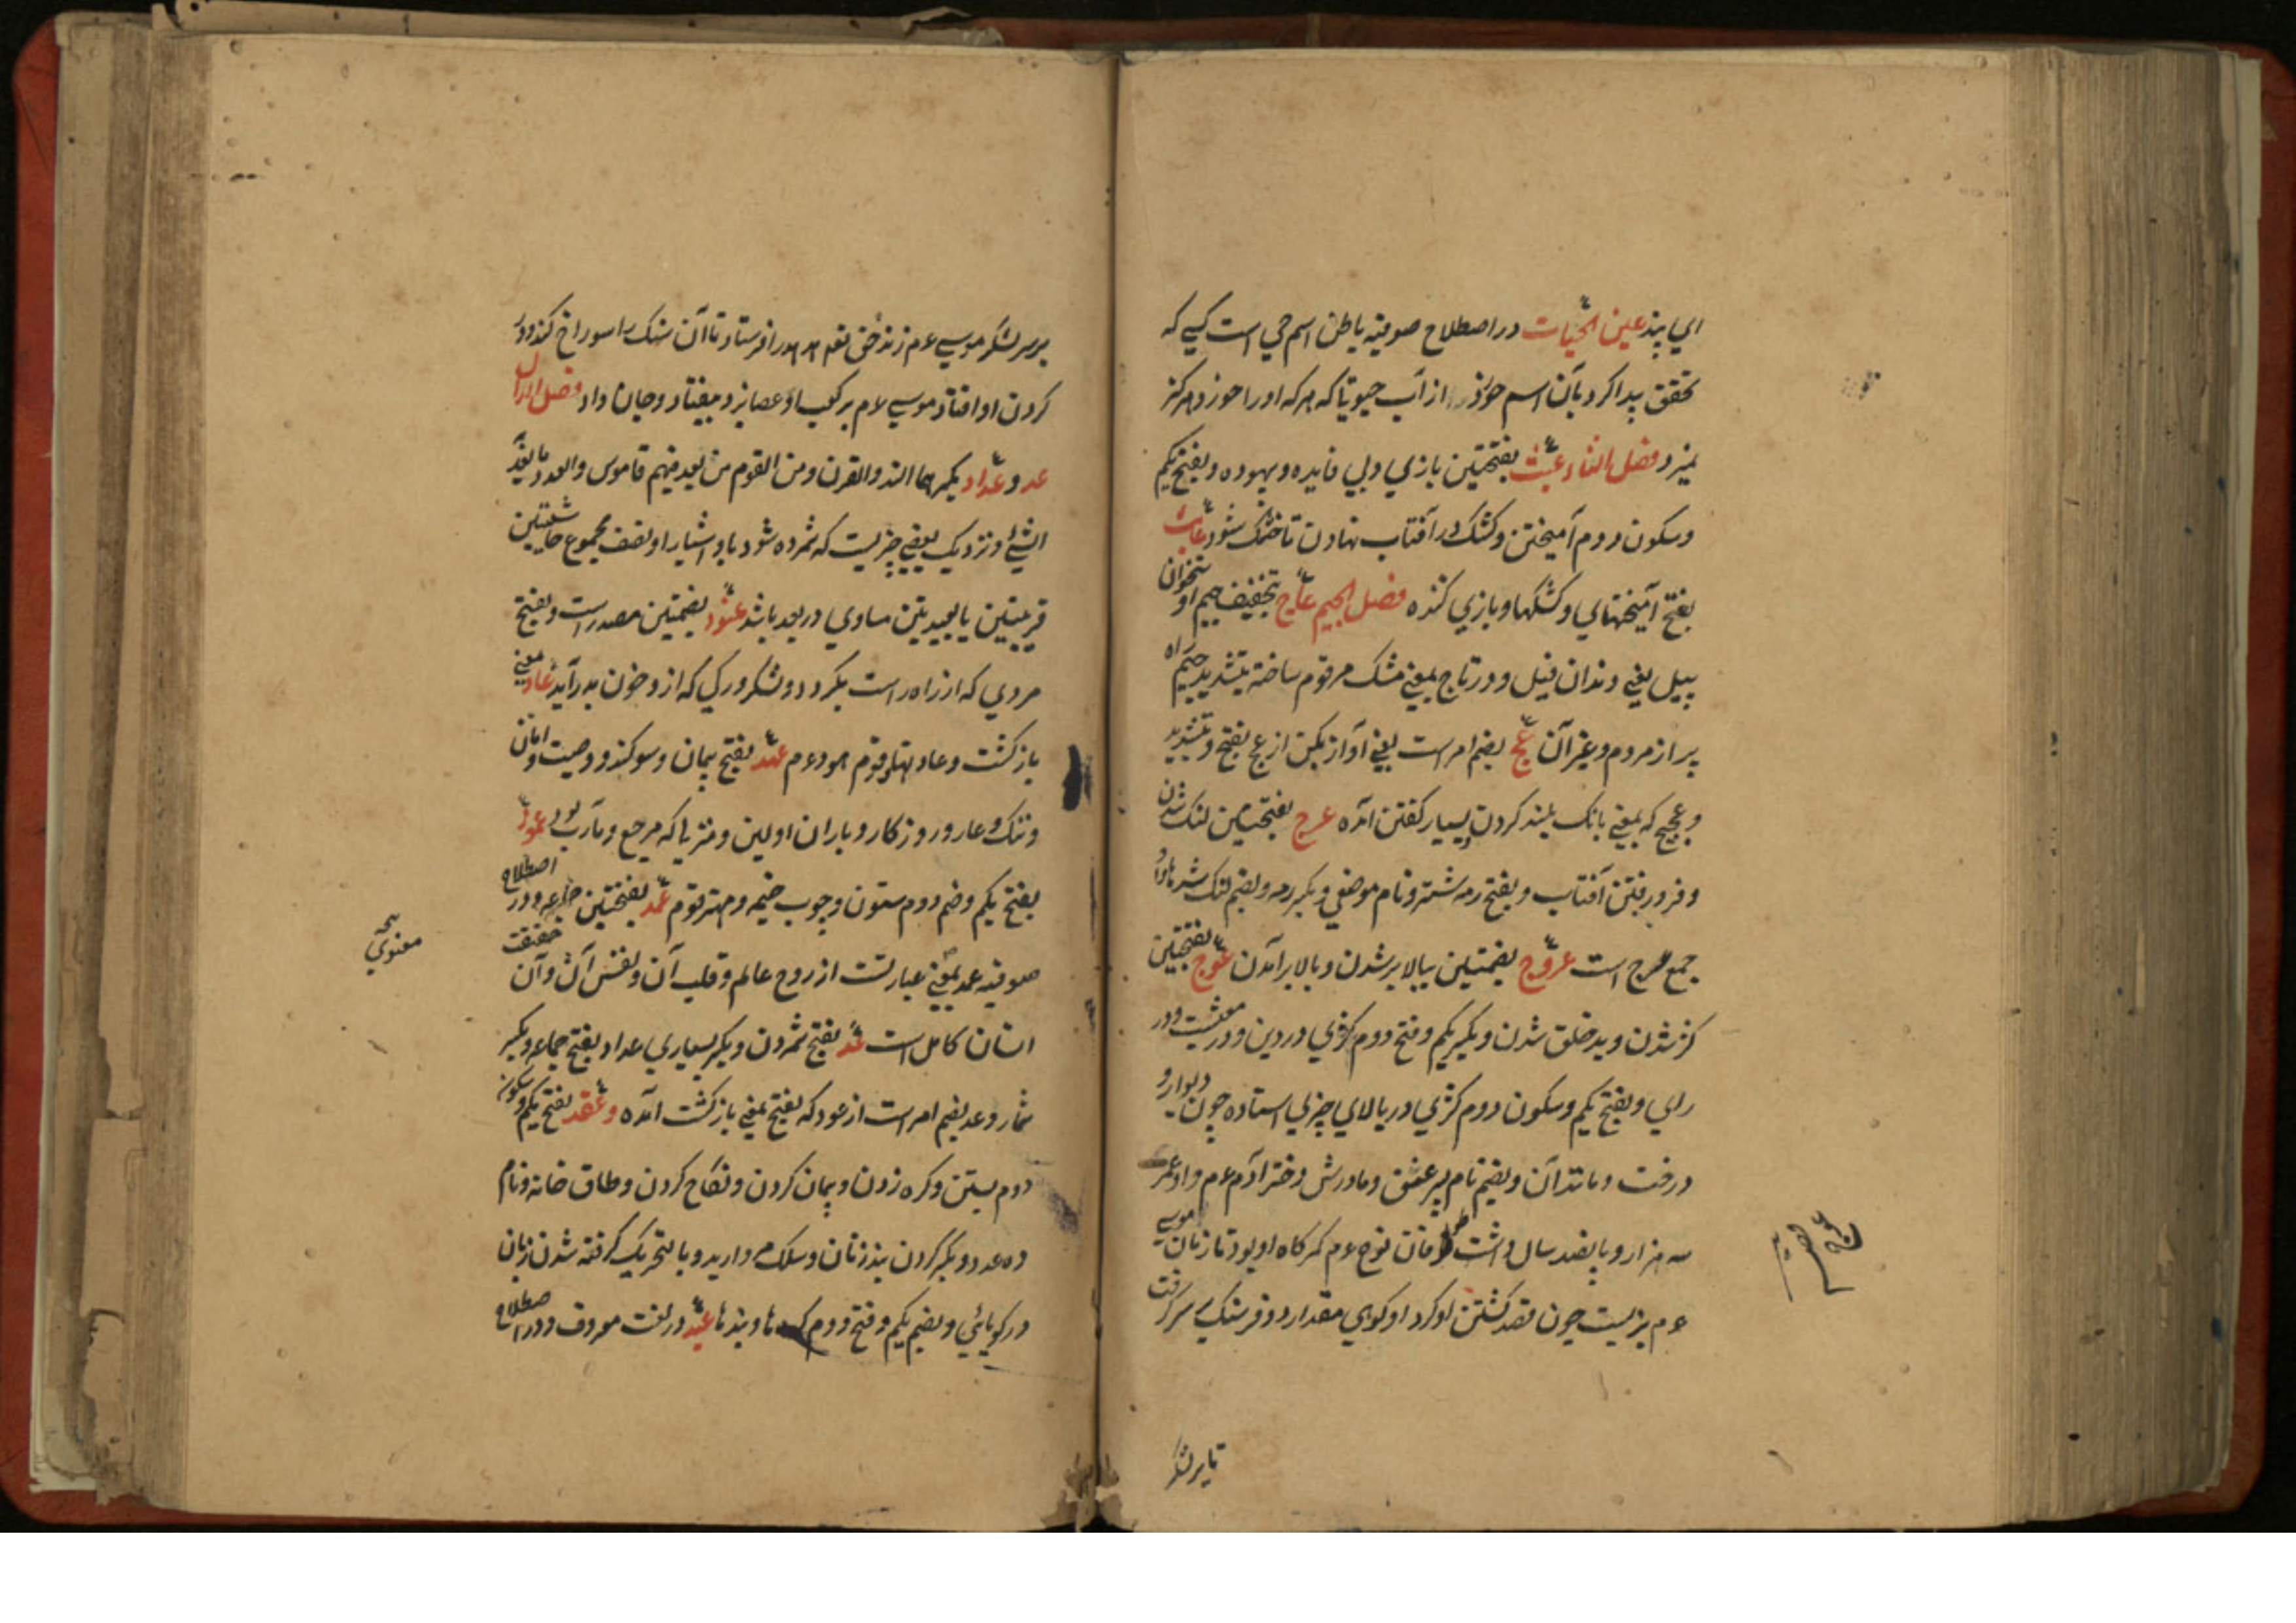 ابي پند عين الحيات در اصطلاح صوفيه باطن اسم حي است كسي كه
تحقق پيدا كرد بآن اسم خورد از آب حيوتا كه هركه او را خورد هركز
نميرد فصل الثاء عبث بفتحتين بازي و بي فايده و بيهوده و بفتح يكم
و سكون دوم آميختن و كشك در آفتاب نهادن تا خشك شود عابث
بفتح آميختهاي و كشكها و بازي كننده فصل الجيم عاج بتخفيف جيم استخوان
پيل يعني دندان فيل و در تاج بمعني مشك مرقوم ساخته بتشديد جيم راه
پر از مردم و غير آن عج بضم امر است يعني آواز بكن از عج بفتح و تشديد
و عجيج كه بمعني بانك بلند كردن بسيار كفتن آمده عرج بفتحتين لنك شدن
و فرو رفتن آفتاب و بفتح رمه شتر و نام موضعي و بكسر رمه و بضم لنك
جمع عرج است عروج بضمتين ببالا بر شدن و بالا بر آمدن عوج بفتحتين
كژ شدن و بد خلق شدن و بكسر يكم و فتح دوم كژي در دين و در معيشت و در
راي و بفتح يكم و سكون دوم كژي در بالاي چيزي استاده چون ديوار و
درخت و مانند آن و بضم نام پسر عنق و مادرش دختر آدم عم و او عمر
سه هزار و پانصد سال داشت طوفان نوح عم كمركاه او بود تا زمان موسي
عم بزيست چون قصد كشتن او كرد او كوهي مقدار دو فرسنك بر سر كرفت
تا بر لشكر
بر سر لشكر موسي عم زند حق تعم هدهد را فرستاد تا آن سنك را سوراخ كند و در
كردن او افتاد موسي عم بر كعب او عصا بزد بيفتاد و جان داد فصل الدال
عد و عداد بكسرهما الند و القرن و من القوم من يعد منهم قاموس و العدد ما يعد
الشئ و نزديك بعضي چيزيست كه شمرده شود باو اشيا را و نصف مجموع حاشيتين
قريبتين يا بعيدتين مساوي در بعد باشد عنود بضمتين مصدر است و بفتح
مردي كه از راه راست بكردد و لشكر و ركي كه از و خون بدر آيد عاد معني
باز كشت و عاد نهاد قوم هود عم عهد بفتح پيمان و سوكند و وصيت و امان
و ننك و عار و روزكار و باران اولين و منزلي كه مرجع و مآب بود عمود
بفتح يكم و ضم دوم ستون و چوب خيمه و مهتر قوم عمد بفتحتين جماعه و در اصطلاح
صوفيه عمد معني عبارتست از روح عالم و قلب آن و نفس آن و آن حقيقت
انسان كامل است عد بفتح شمردن و بكسر بسياري عداد بفتح جماعه و بكسر
شمار و عد بضم امر است از عود كه بفتح بمعني باز كشت آمده و عقد بفتح يكم و سكون
دوم بستن و كره زدن و پيمان كردن و نكاح كردن و طاق خانه و نام
ده عدد و بكسر كردن بند زنان و سلك مرواريد و بالتحريك كرفته شدن زبان
در كويائي و بضم يكم و فتح دوم كرهها و بندها عبد در لغت معروف و در اصطلاح
معنوي